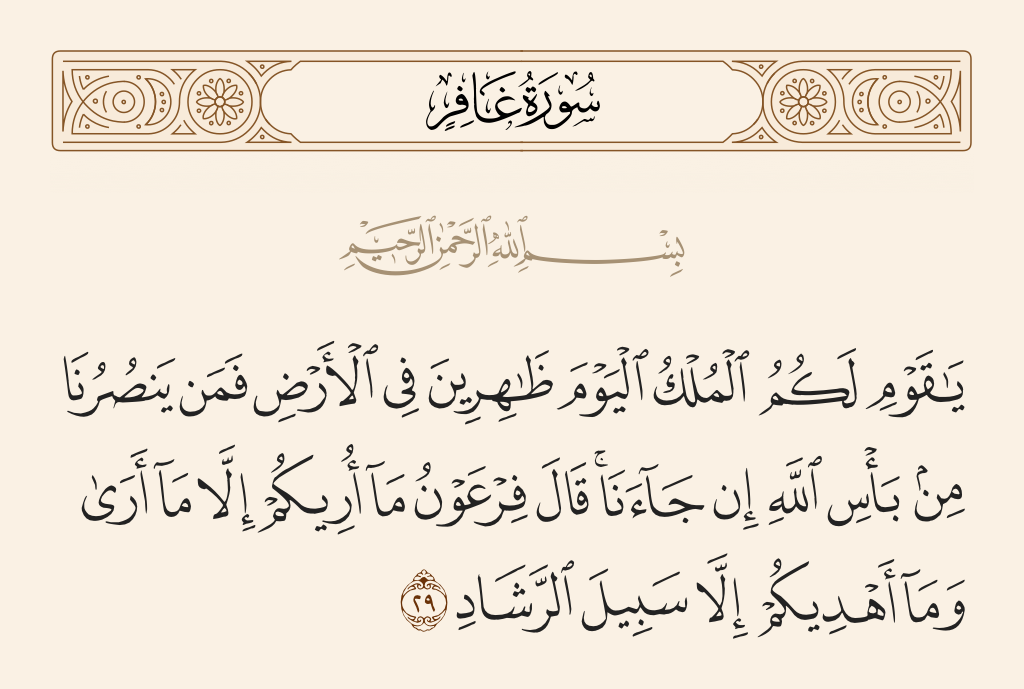 سُورَةُ غَافِرٍ
بِسْمِ ٱللَّهِ ٱلرَّحْمَٰنِ ٱلرَّحِيمِ
يَٰقَوْمِ لَكُمُ ٱلْمُلْكُ ٱلْيَوْمَ ظَٰهِرِينَ فِى ٱلْأَرْضِ فَمَن يَنصُرُنَا
مِنۢ بَأْسِ ٱللَّهِ إِن جَآءَنَا ۚ قَالَ فِرْعَوْنُ مَآ أُرِيكُمْ إِلَّا مَآ أَرَىٰ
وَمَآ أَهْدِيكُمْ إِلَّا سَبِيلَ ٱلرَّشَادِ ٢٩